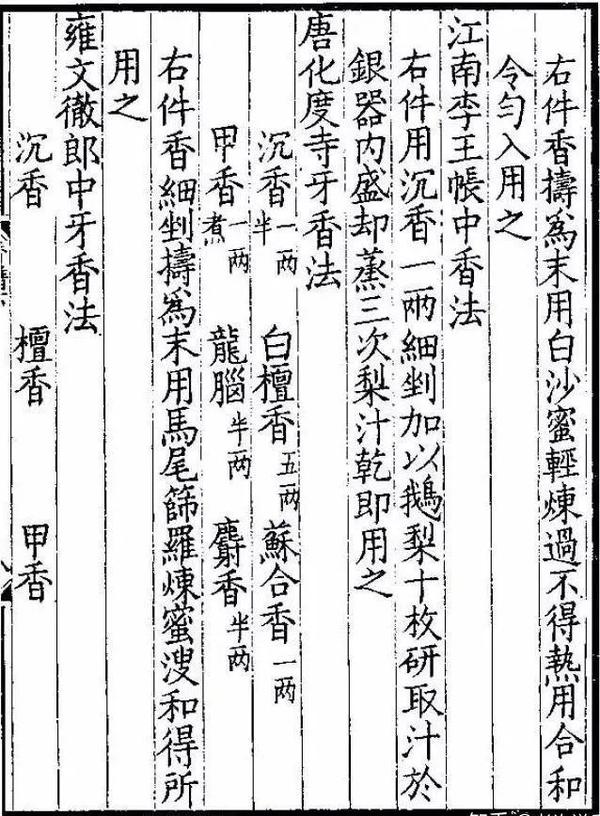 右件香擣為末用白沙蜜輕煉過不得熱用合和
令匀入用之
江南李王帳中香法
右件用沉香一兩細剉加以鵝梨十枚研取汁於
銀器內盛却蒸三次梨汁乾即用之
唐化度寺牙香法
沉香一兩半 白檀香五兩 蘇合香一兩
甲香一兩煮 龍腦半兩 麝香半兩
右件香細剉擣為末用馬尾篩羅煉蜜溲和得所
用之
雍文徹郎中牙香法
沉香 檀香 甲香
知乎